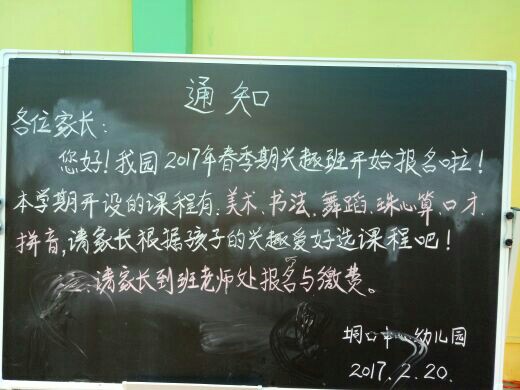 通知
各位家长:
您好!我园2017年春季期兴趣班开始报名啦!
本学期开设的课程有:美术、书法、舞蹈、珠心算、口才、
拼音,请家长根据孩子的兴趣爱好选课程吧!
二、请家长到班老师处报名与缴费。
垌口中心幼儿园
2017.2.20.